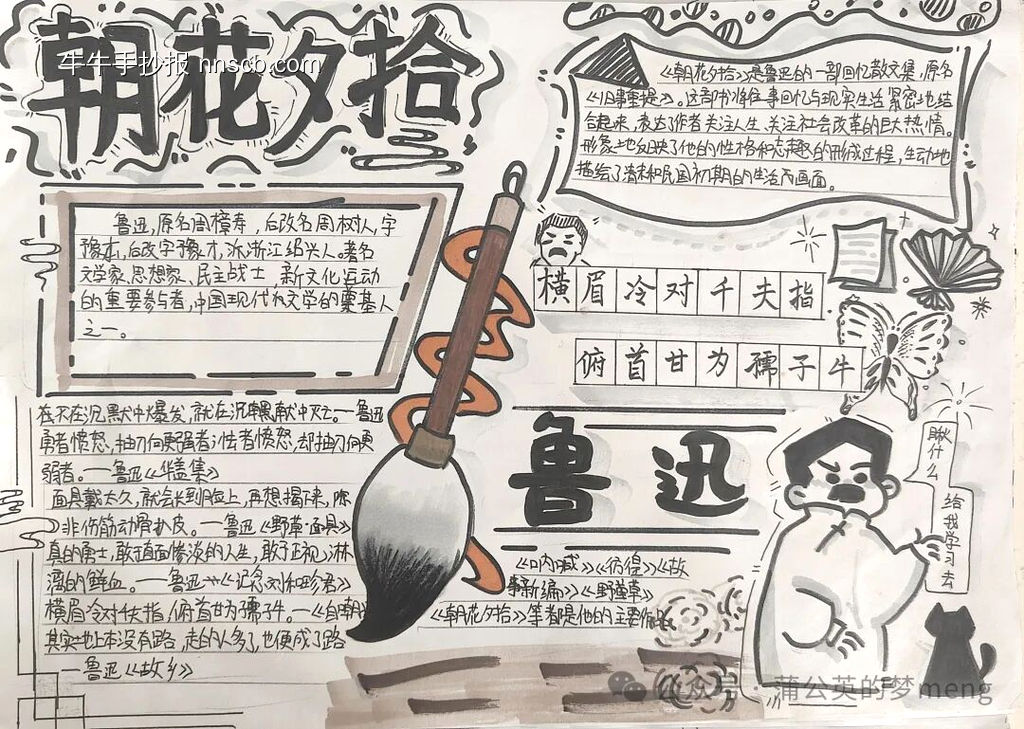 朝花夕拾
牛牛手抄报 hnscb.com
《朝花夕拾》是鲁迅的一部回忆散文集,原名
《旧事重提》。这部书将往事回忆与现实生活紧密地结
合起来,表达了作者关注人生、关注社会改革的巨大热情。
形象地反映了他的性格和志趣的形成过程,生动地
描绘了清末和民国初期的生活画面。
鲁迅,原名周樟寿,后改名周树人,字
豫山,后改字豫才,浙江绍兴人。著名
文学家、思想家、民主战士,新文化运动
的重要参与者,中国现代文学的奠基人
之一。
横眉冷对千夫指
俯首甘为孺子牛
不在沉默中爆发,就在沉默中灭亡。—鲁迅
勇者愤怒,抽刃向更强者;怯者愤怒,却抽刃向更
弱者。——鲁迅《华盖集》
面具戴太久,就会长到脸上,再想揭下来,除
非伤筋动骨扒皮。—鲁迅《野草·面具》
真的勇士,敢于直面惨淡的人生,敢于正视淋
漓的鲜血。——鲁迅《记念刘和珍君》
横眉冷对千夫指,俯首甘为孺子牛。—《自嘲》
其实地上本没有路,走的人多了,也便成了路
—鲁迅《故乡》
鲁迅
《呐喊》《彷徨》《故
事新编》《野草》
《朝花夕拾》等都是他的主要作品
瞅什么
给我学习去
公众号 · 蒲公英的梦meng